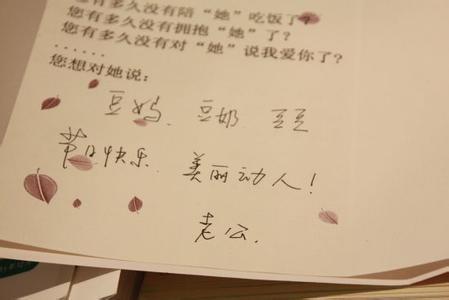 您有多久没有陪“她”吃饭了？
您有多久没有拥抱“她”了？
您有多久没有对“她”说我爱你了？
......
您想对她说：
豆妈 豆奶 豆豆
节日快乐 美丽动人！
老公.